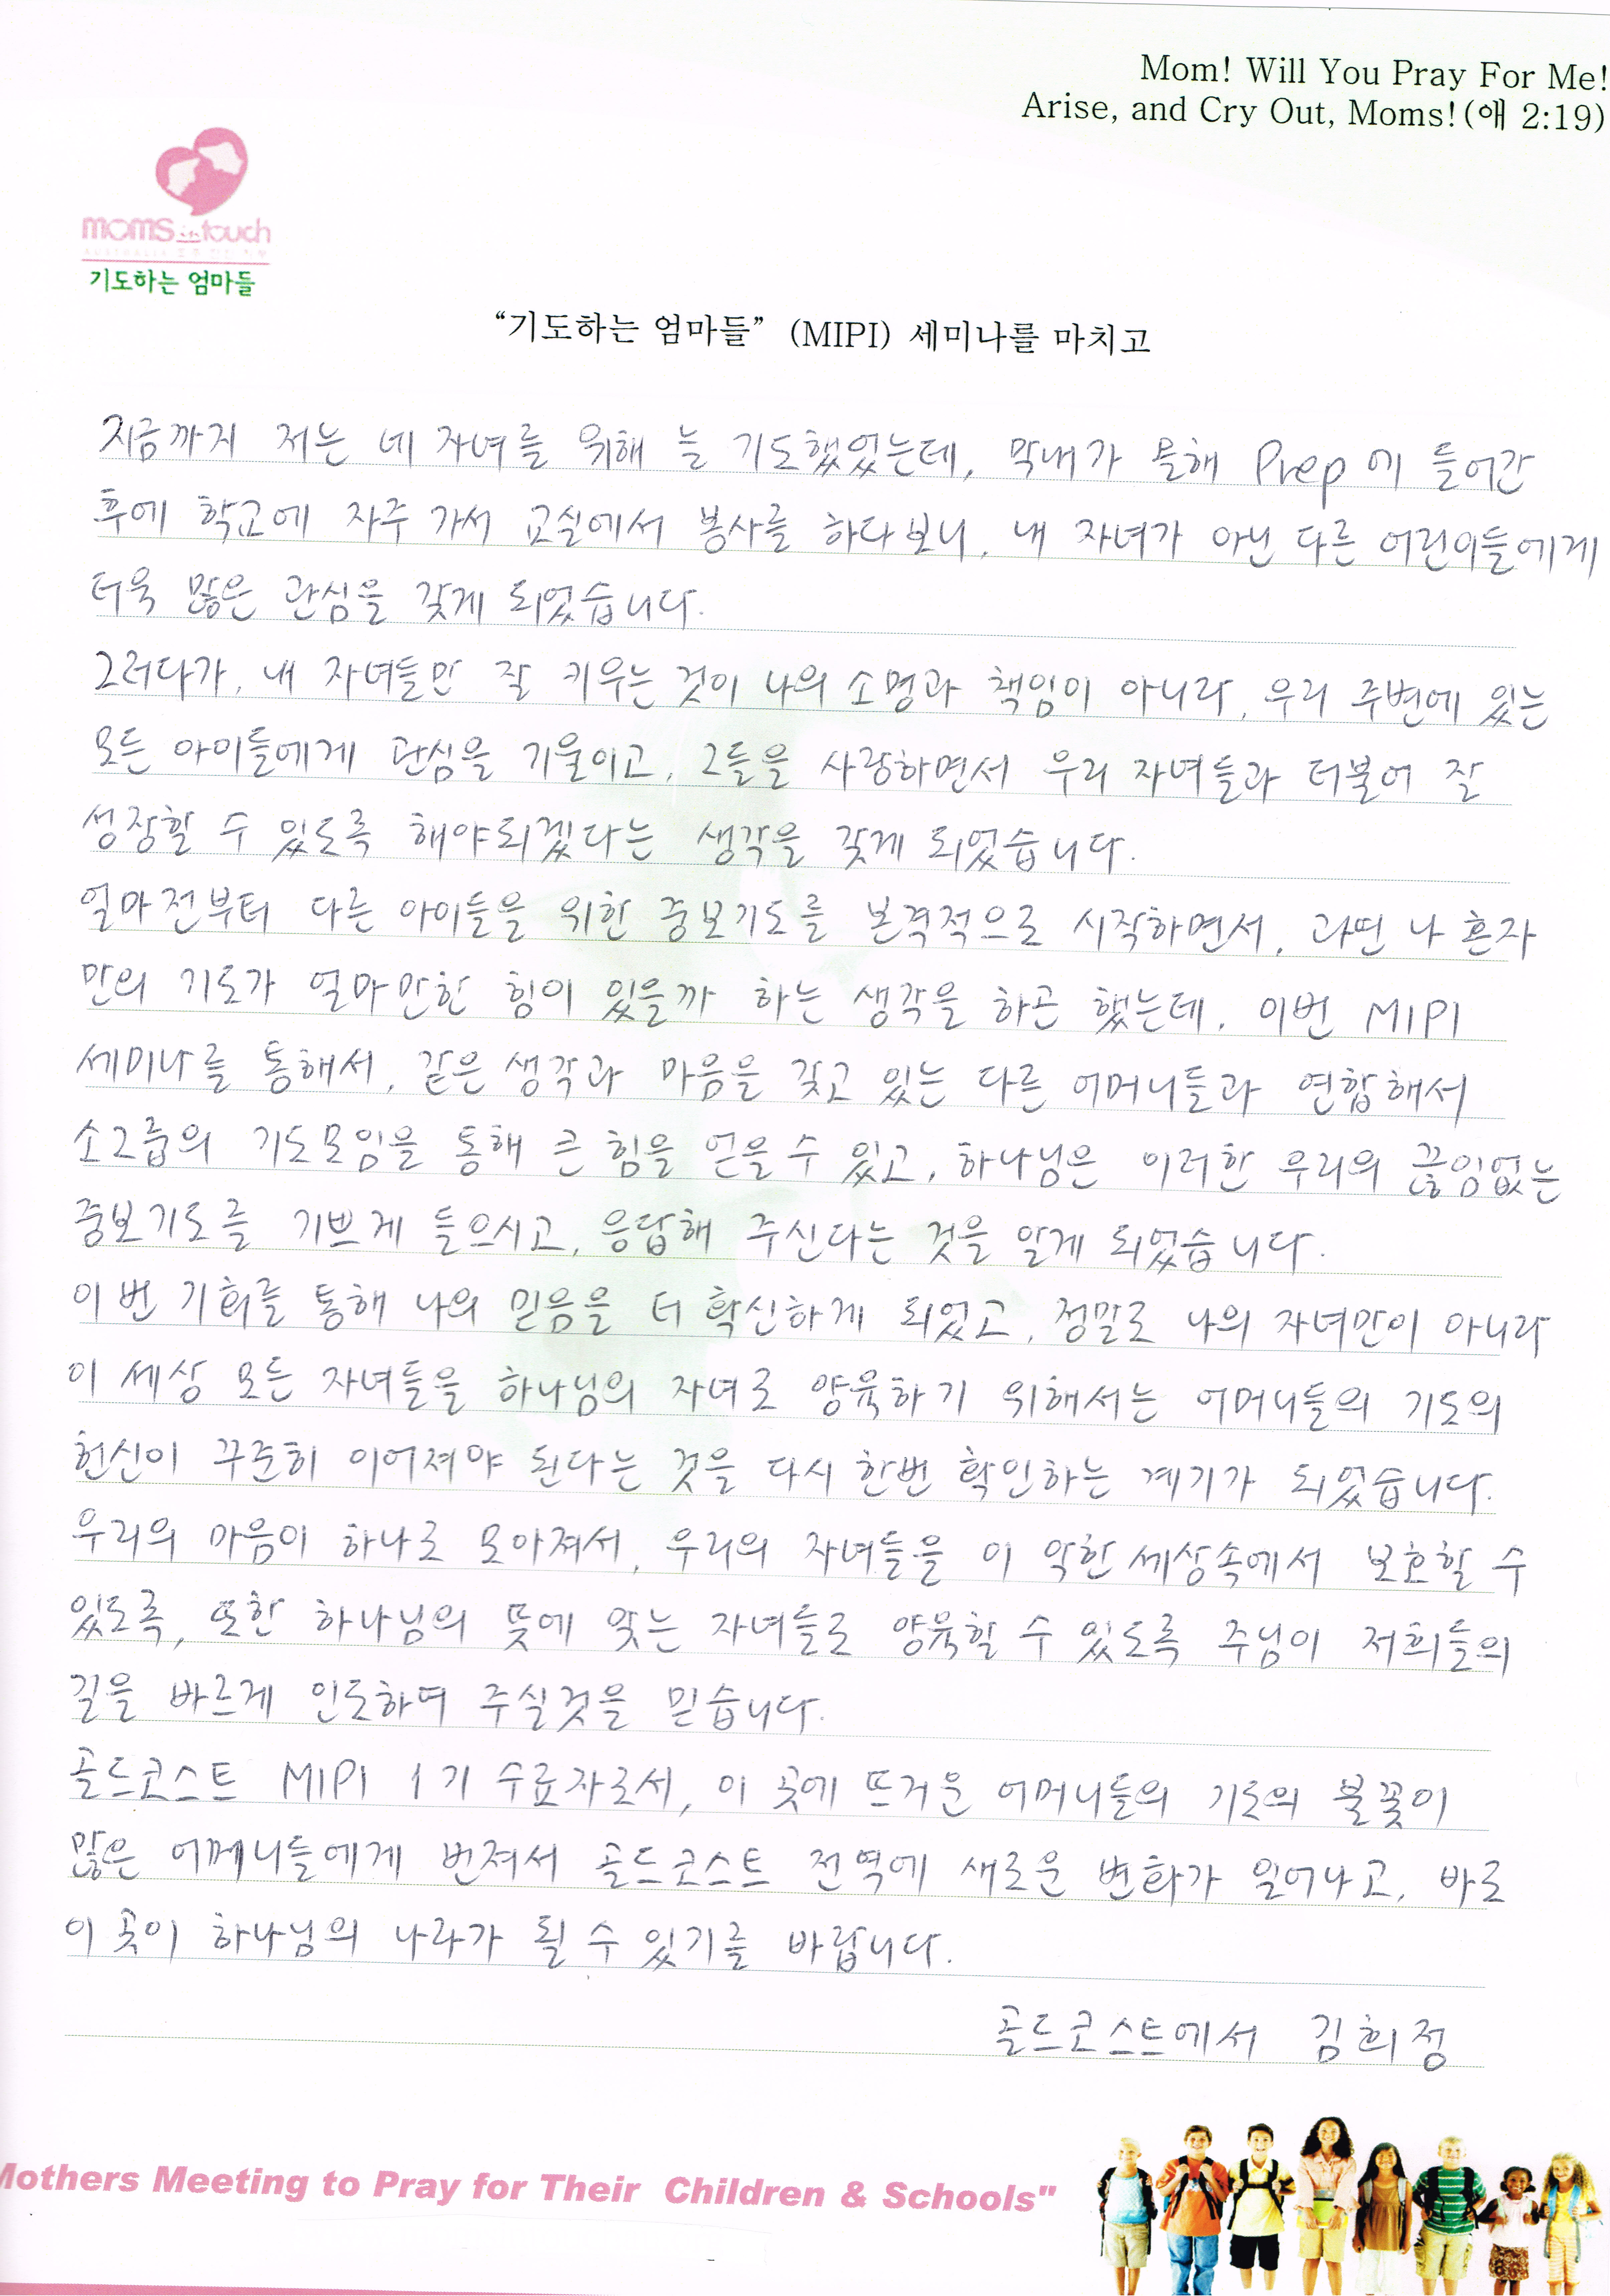 Mom! Will You Pray For Me!
Arise, and Cry Out, Moms!(애 2:19)
moms in touch
기도하는 엄마들
“기도하는 엄마들” (MIPI) 세미나를 마치고
지금까지 저는 네 자녀를 위해 늘 기도했었는데, 막내가 올해 Prep에 들어간
후에 학교에 자주 가서 교실에서 봉사를 하다보니, 내 자녀가 아닌 다른 어린이들에게
더욱 많은 관심을 갖게 되었습니다.
그러다가, 내 자녀들만 잘 키우는 것이 나의 소명과 책임이 아니라, 우리 주변에 있는
모든 아이들에게 관심을 기울이고, 그들을 사랑하면서 우리 자녀들과 더불어 잘
성장할 수 있도록 해야되겠다는 생각을 갖게 되었습니다.
얼마전부터 다른 아이들을 위한 중보기도를 본격적으로 시작하면서, 과연 나 혼자
만의 기도가 얼마만한 힘이 있을까 하는 생각을 하곤 했는데, 이번 MIPI
세미나를 통해서, 같은 생각과 마음을 갖고 있는 다른 어머니들과 연합해서
소그룹의 기도모임을 통해 큰 힘을 얻을 수 있고, 하나님은 이러한 우리의 끊임없는
중보기도를 기쁘게 들으시고, 응답해 주신다는 것을 알게 되었습니다.
이번 기회를 통해 나의 믿음을 더 확신하게 되었고, 정말로 나의 자녀만이 아니라
이 세상 모든 자녀들을 하나님의 자녀로 양육하기 위해서는 어머니들의 기도의
헌신이 꾸준히 이어져야 된다는 것을 다시 한번 확인하는 계기가 되었습니다.
우리의 마음이 하나로 모아져서, 우리의 자녀들을 이 악한 세상속에서 보호할 수
있도록, 또한 하나님의 뜻에 맞는 자녀들로 양육할 수 있도록 주님이 저희들의
길을 바르게 인도하여 주실것을 믿습니다.
골드코스트 MIPI 1기 수료자로서, 이 곳에 뜨거운 어머니들의 기도의 불꽃이
많은 어머니들에게 번져서 골드코스트 전역에 새로운 변화가 일어나고, 바로
이 곳이 하나님의 나라가 될 수 있기를 바랍니다.
골드코스트에서 김희정
Mothers Meeting to Pray for Their Children & Schools"